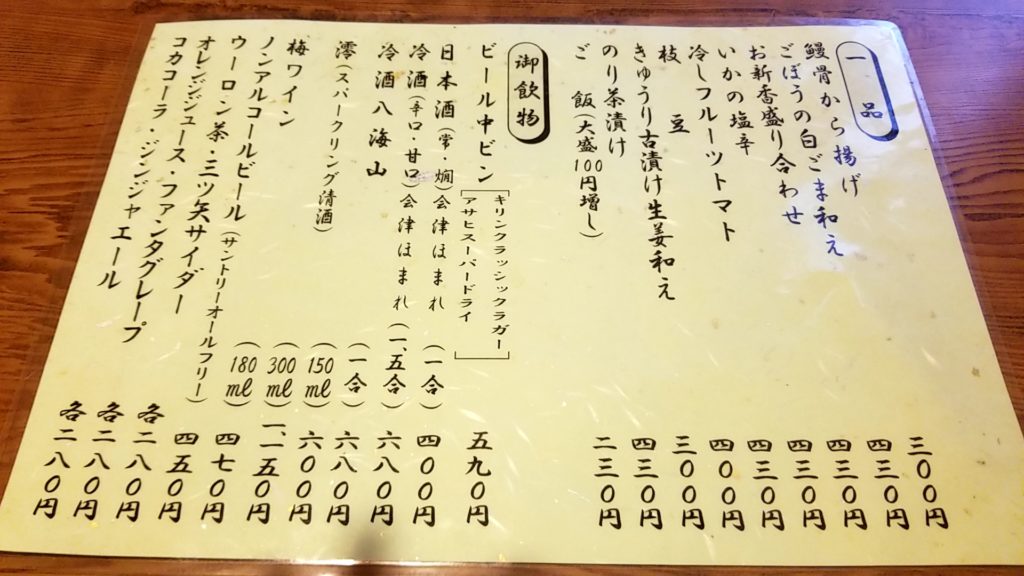 一品
鰻骨から揚げ 三〇〇円
ごぼうの白ごま和え 四三〇円
お新香盛り合わせ 四三〇円
いかの塩辛 四三〇円
冷しフルーツトマト 四三〇円
枝豆 四〇〇円
きゅうり古漬け生姜和え 三〇〇円
のり茶漬け 四三〇円
ご飯(大盛100円増し) 二三〇円
御飲物
ビール中ビン [キリンクラッシックラガー
アサヒスーパードライ] 五九〇円
日本酒(常・燗)会津ほまれ (一合) 四〇〇円
冷酒(辛口・甘口)会津ほまれ (一、五合) 六八〇円
冷酒八海山 (一合) 六八〇円
澪(スパークリング清酒) (150ml) 六〇〇円
(300ml) 一、一五〇円
梅ワイン (180ml) 四七〇円
ノンアルコールビール(サントリーオールフリー) 四五〇円
ウーロン茶・三ツ矢サイダー 各二八〇円
オレンジジュース・ファンタグレープ 各二八〇円
コカコーラ・ジンジャエール 各二八〇円